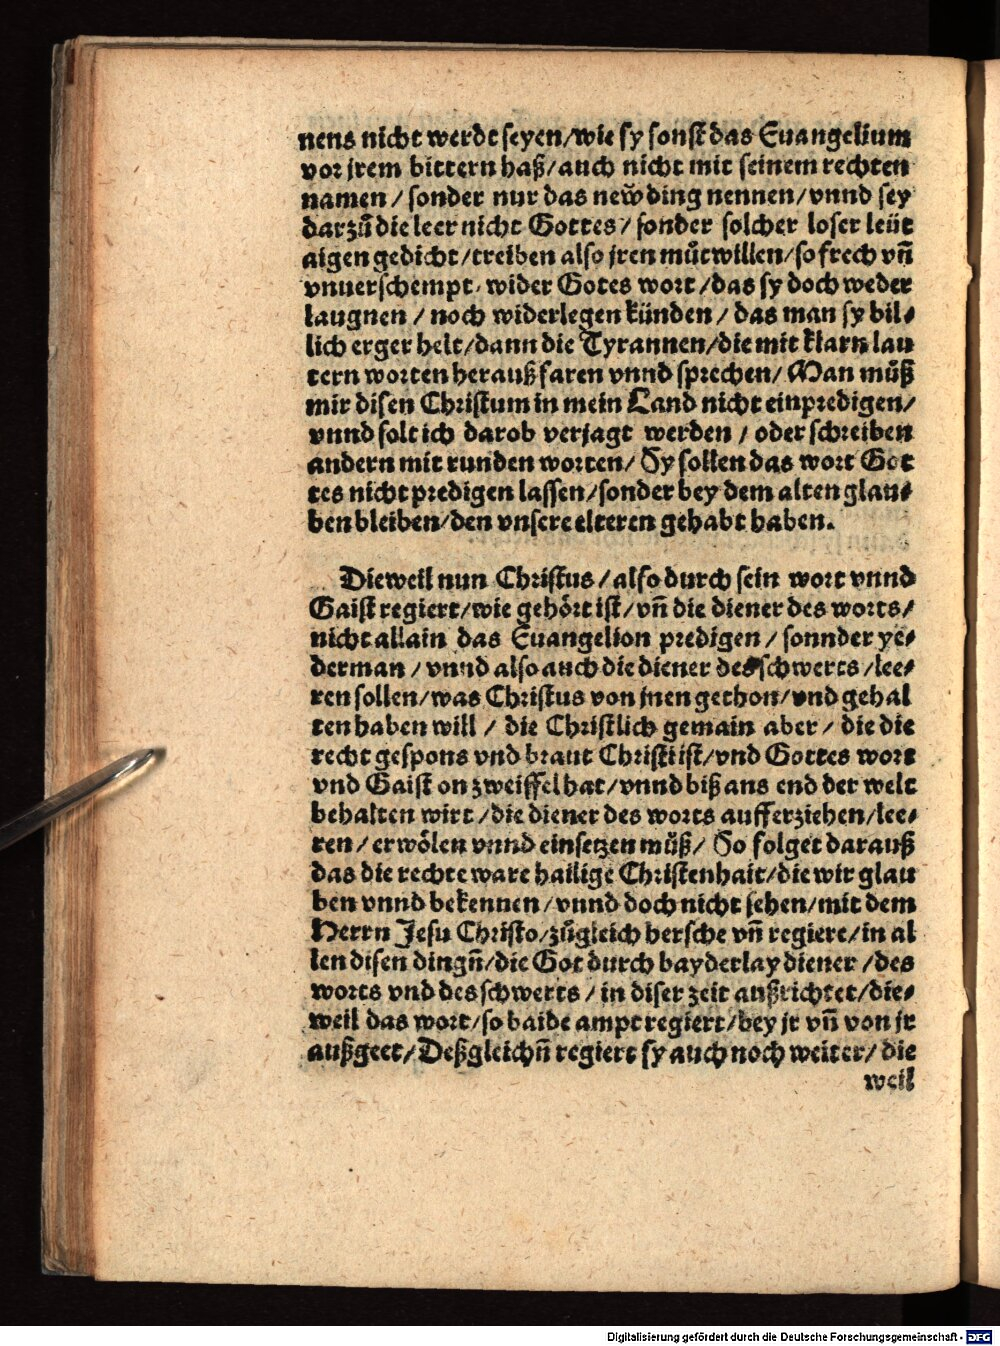 nens nicht werdt seyen/wie sy sonst das Euangelium
vor jrem bittern haß/auch nicht mit seinem rechten
namen/sonder nur das new̌ ding nennen/vnnd sey
darzů die leer nicht Gottes/sonder solcher loser leüt
aigen gedicht/treiben also jren můtwillen/so frech vñ
vnuerschempt/wider Gotes wort/das sy doch weder
laugnen/noch widerlegen künden/das man sy bil⸗
lich erger helt/dann die Tyrannen/die mit klarn lau
tern worten herauß faren vnnd sprechen/Man můß
mir disen Christum in mein Land nicht einpredigen/
vnnd solt ich darob verjagt werden/oder schreiben
andern mit runden worten/Sy sollen das wort Got
tes nicht predigen lassen/sonder bey dem alten glau⸗
ben bleiben/den vnsere elteren gehabt haben.
Dieweil nun Christus/also durch sein wort vnnd
Gaist regiert/wie gehört ist/vñ die diener des worts/
nicht allain das Euangelion predigen/sonnder ye⸗
derman/vnnd also auch die diener des schwerts/lee⸗
ren sollen/was Christus von jnen gethon/vnd gehal
ten haben will/die Christlich gemain aber/die die
recht gespons vnd braut Christi ist/vnd Gottes wort
vnd Gaist on zweiffel hat/vnnd biß ans end der welt
behalten wirt/die diener des worts aufferziehen/lee⸗
ren/erwölen vnnd einsetzen můß/So folget darauß
das die rechte ware hailige Christenhait/die wir glau
ben vnnd bekennen/vnnd doch nicht sehen/mit dem
Herrn Jesu Christo/zůgleich hersche vñ regiere/in al
len disen dingñ/die Got durch bayderlay diener/des
worts vnd des schwerts/in diser zeit außrichtet/die⸗
weil das wort/so baide ampt regiert/bey jr vñ von jr
außgeet/Deßgleichñ regiert sy auch noch weiter/die
weil
Digitalisierung gefördert durch die Deutsche Forschungsgemeinschaft - DFG